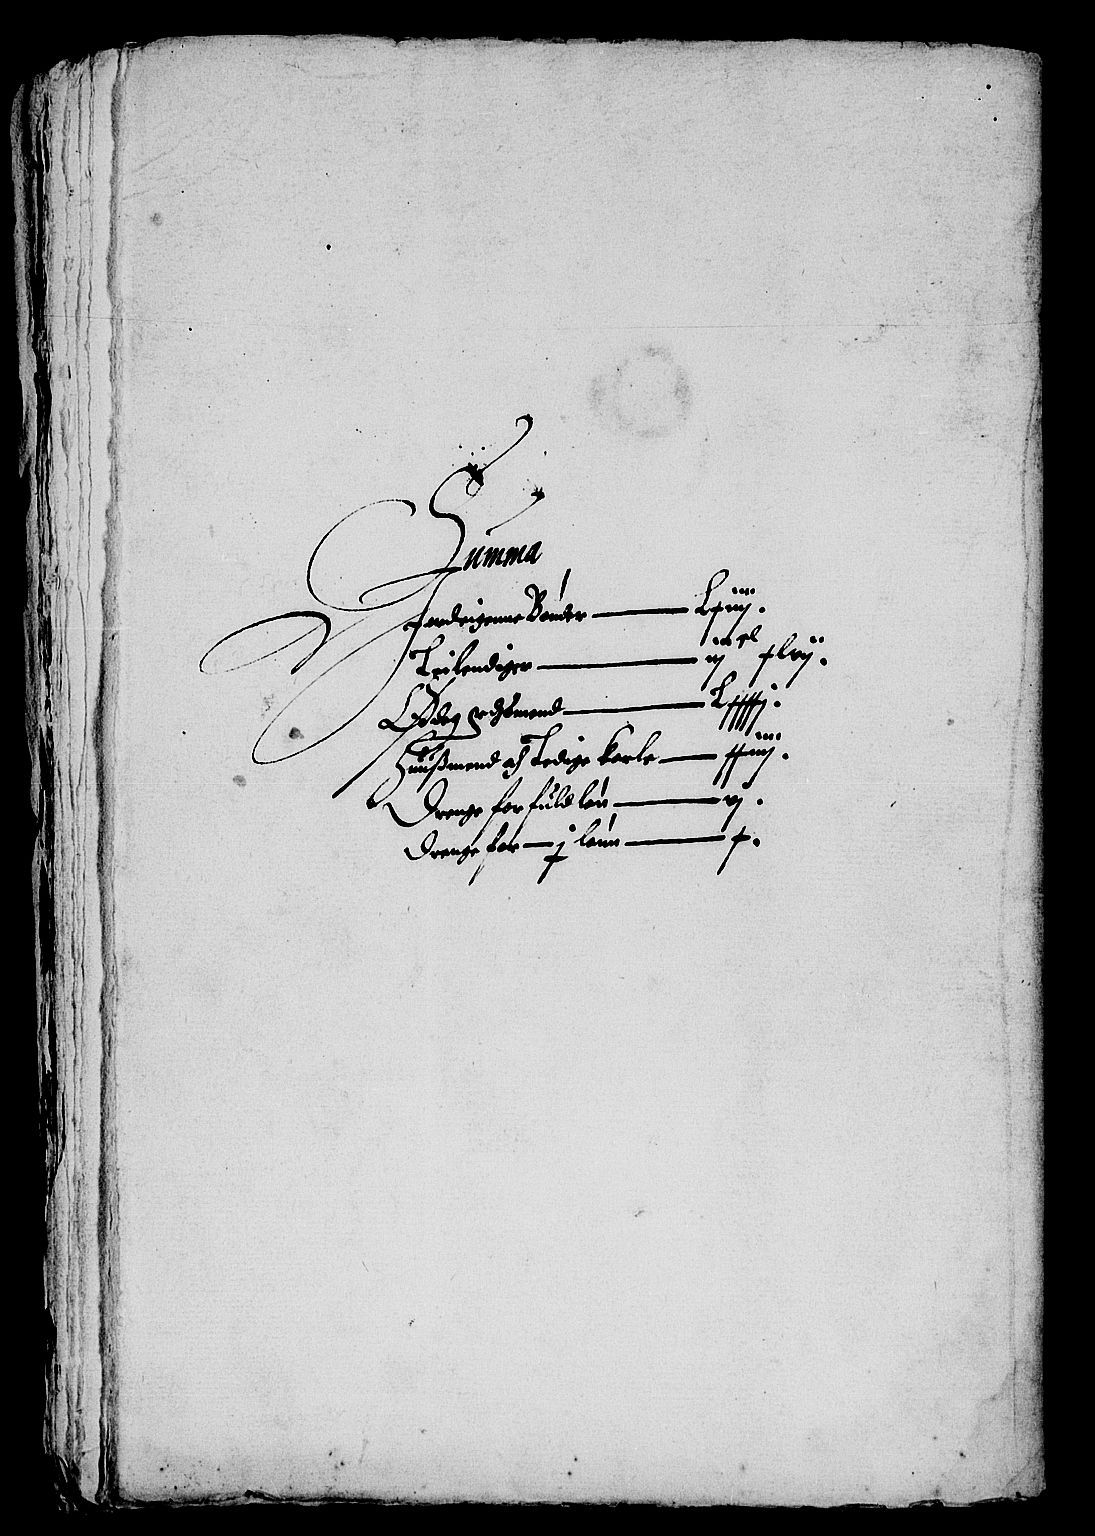 Summa
Jordeigenne Bønder — Lxiiij.
Leilendiger — ij^c xlvij.
Ødeg ordsmend — Lxxxxj.
Huusmend och Ledige karle — xxiiij.
Drenge for fuld løn — vj.
Drenge for — j lønn — x.